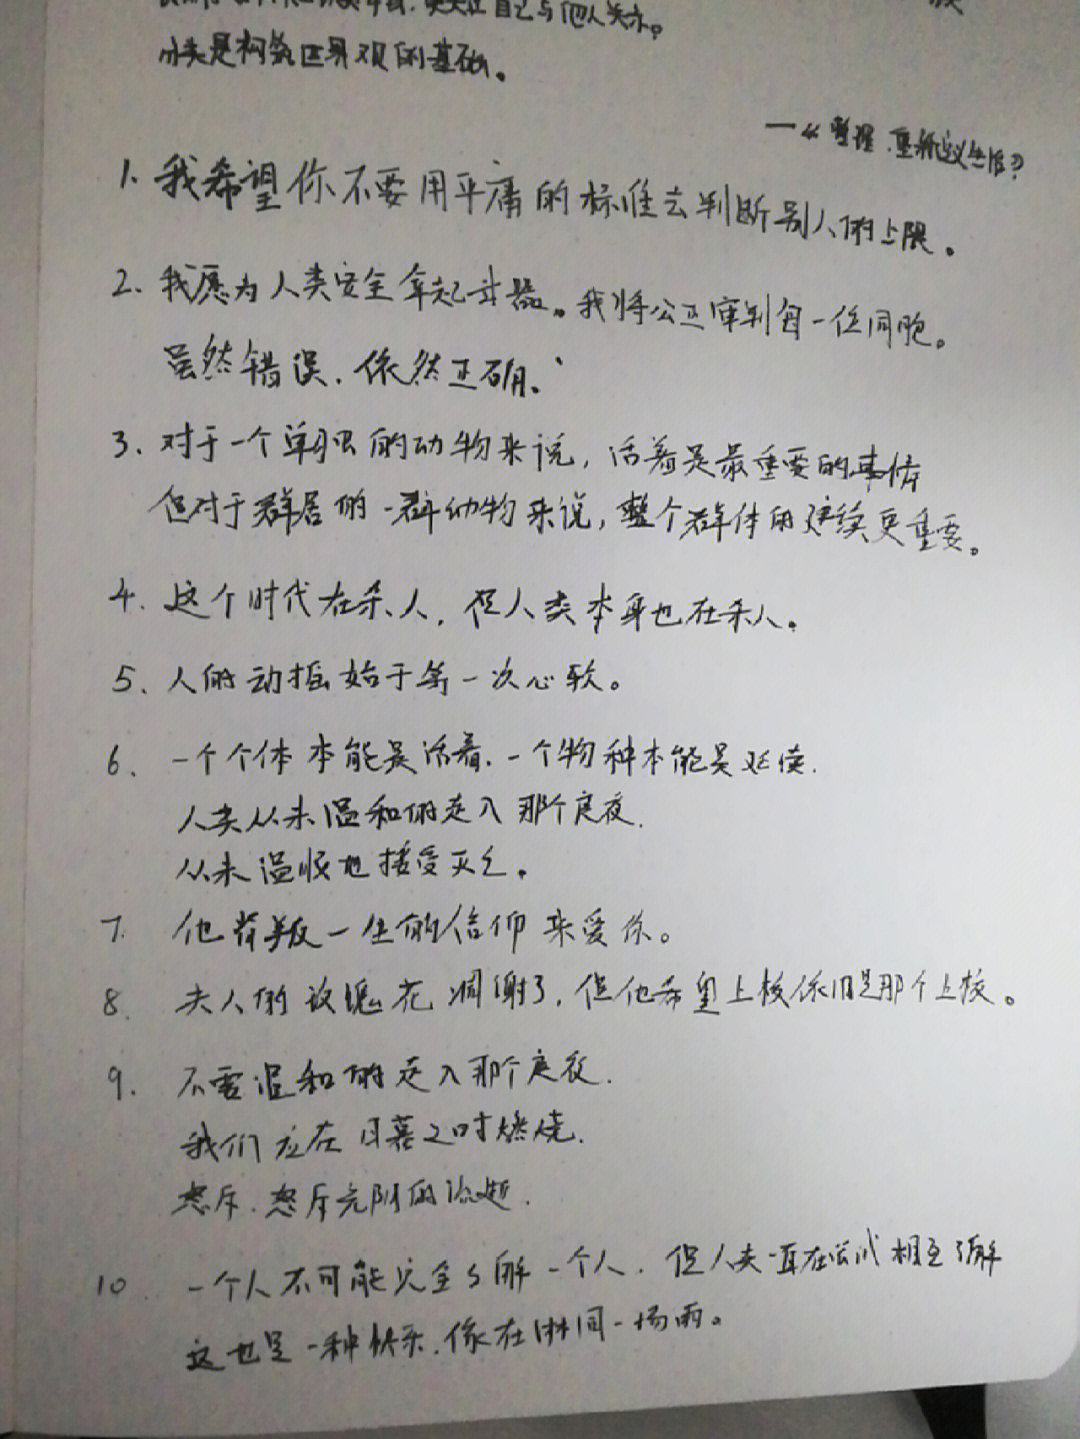 自己与他人关系。
分类是构筑世界观的基础。
——《整理,重新定义生活》
1. 我希望你不要用平庸的标准去判断别人的上限。
2. 我愿为人类安全拿起武器。我将公正审判每一位同胞。
虽然错误,依然正确。
3. 对于一个单独的动物来说,活着是最重要的事情
但对于群居的一群动物来说,整个群体的延续更重要。
4. 这个时代在杀人,但人类本身也在杀人。
5. 人的动摇始于第一次心软。
6. 一个个体本能是活着,一个物种本能是延续.
人类从未温和的走入那个良夜.
从未温顺地接受灭亡。
7. 他背叛一生的信仰来爱你。
8. 夫人的玫瑰花凋谢了,但他希望上校依旧是那个上校。
9. 不需温和的走入那个良夜.
我们应在日暮之时燃烧.
怒斥.怒斥光阴的流逝.
10. 一个人不可能完全了解一个人.但人类一直在尝试相互了解
这也是一种快乐.像在淋同一场雨。